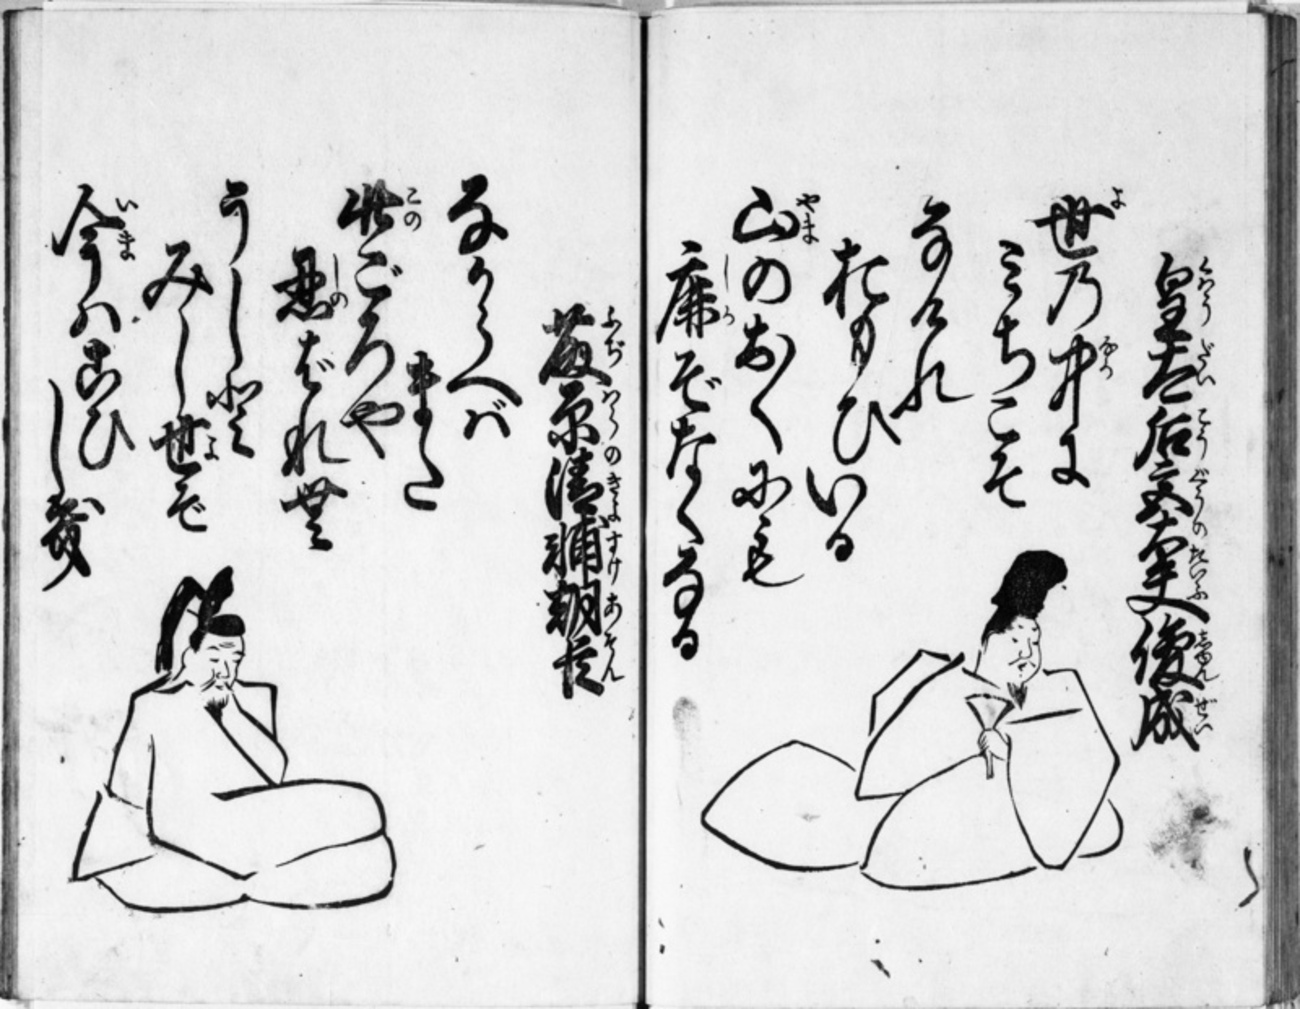 皇太后宮大夫俊成
世乃中よ
ミちこそ
なけれ
おもひいる
山のおくにも
鹿ぞなくなる
藤原清輔朝臣
ながらへバ
またこ
此ごろや
忍ばれむ
うしと
みし世ぞ
今ハこひ
しき